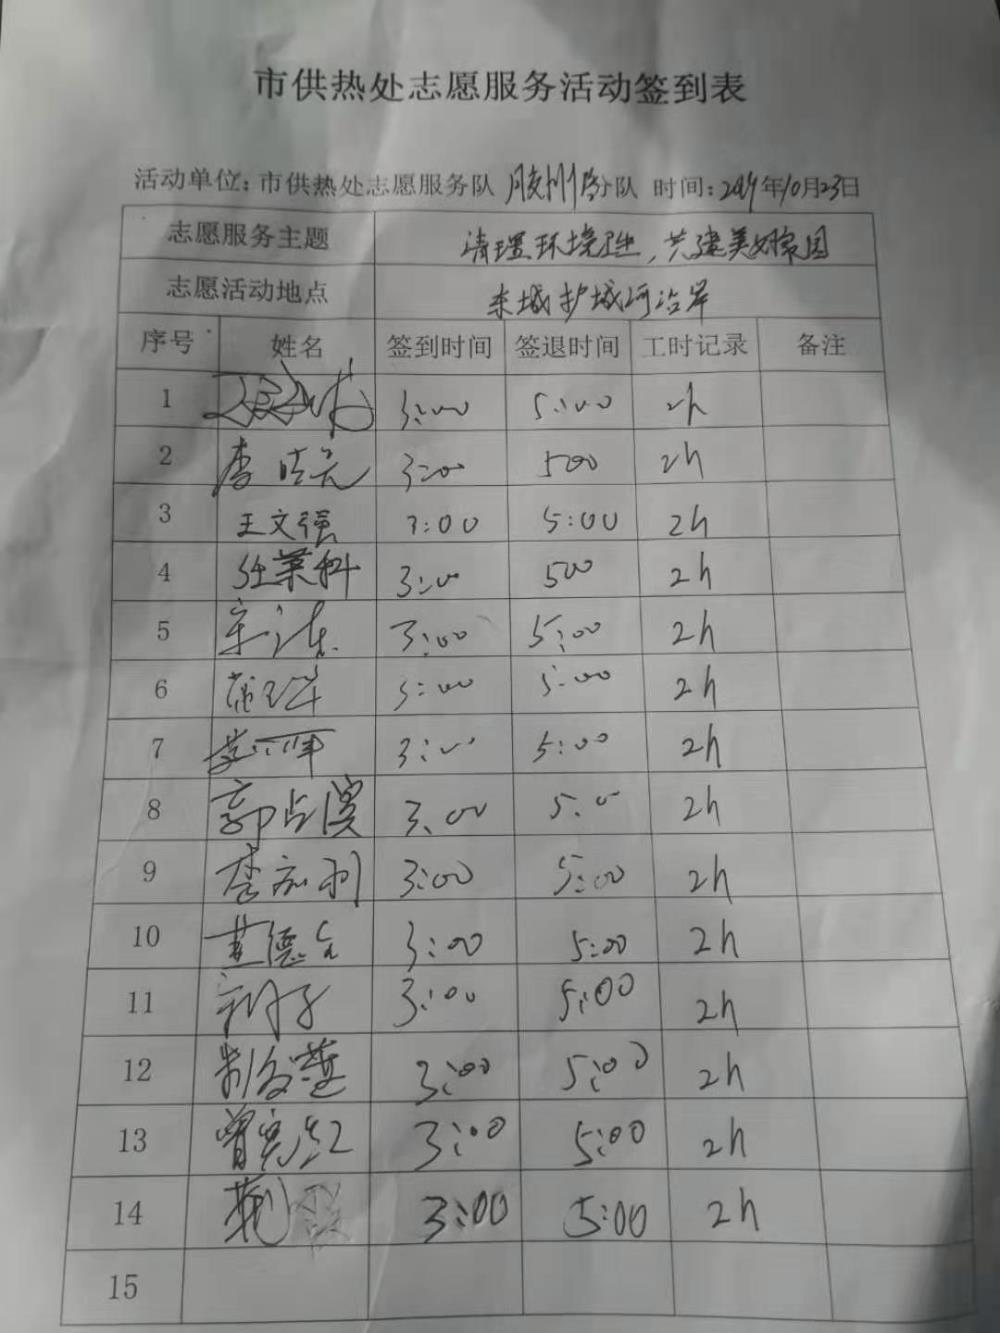 市供热处志愿服务活动签到表
活动单位:市供热处志愿服务队 分队 时间:2019年10月23日
志愿服务主题 清理环境卫生,共建美好家园
志愿活动地点 东城护城河沿岸
序号 姓名 签到时间 签退时间 工时记录 备注
1 3:00 5:00 2h
2 3:00 500 2h
3 王文强 3:00 5:00 2h
4 3:00 500 2h
5 3:00 5:00 2h
6 3:00 5:00 2h
7 3:00 5:00 2h
8 郭占滨 3:00 5:00 2h
9 3:00 5:00 2h
10 3:00 5:00 2h
11 3:00 5:00 2h
12 3:00 5:00 2h
13 曾宪红 3:00 5:00 2h
14 3:00 5:00 2h
15